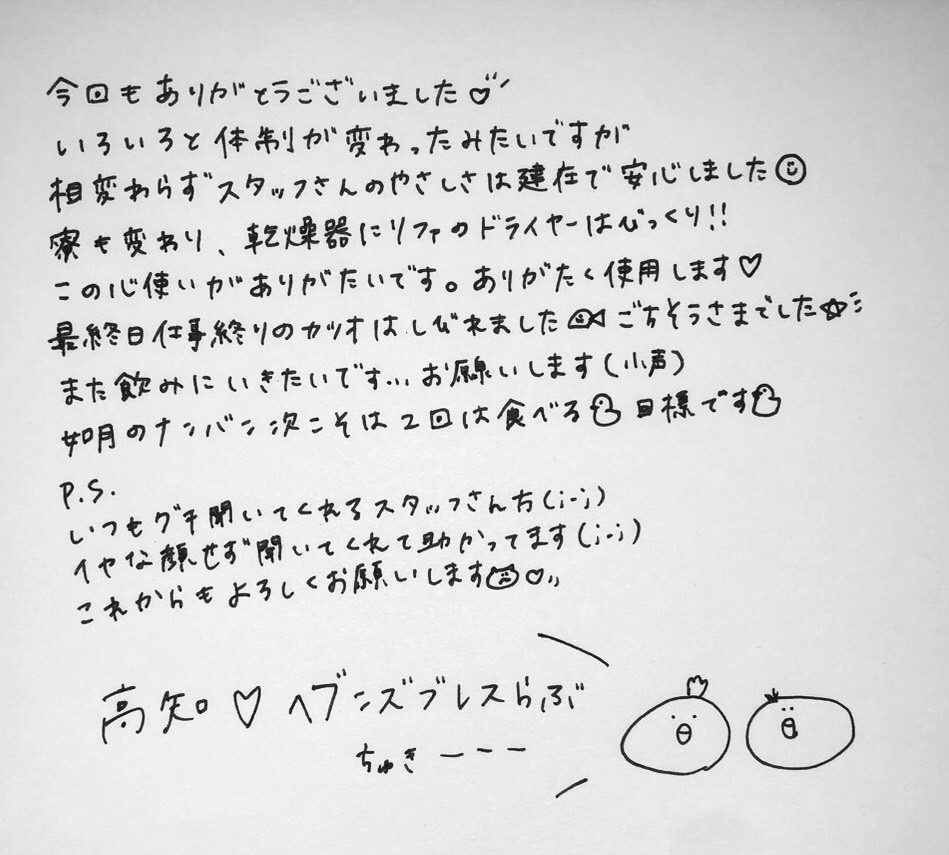 今回もありがとうございました♡
いろいろと体制が変わったみたいですが
相変わらずスタッフさんのやさしさは建在で安心しました☺
寮も変わり、乾燥器にリファのドライヤーはびっくり!!
この心使いがありがたいです。ありがたく使用します♡
最終日仕事終りのカツオはしびれました ごちそうさまでした☆
また飲みにいきたいです... お願いします(小声)
如月のナンバン次こそは2回は食べる 目標です
P.S.
いつもグチ聞いてくれるスタッフさん方(;-;)
イヤな顔せず聞いてくれて助かってます(;-;)
これからもよろしくお願いします♡
高知♡ヘブンズブレスらぶ
ちゅきーーー